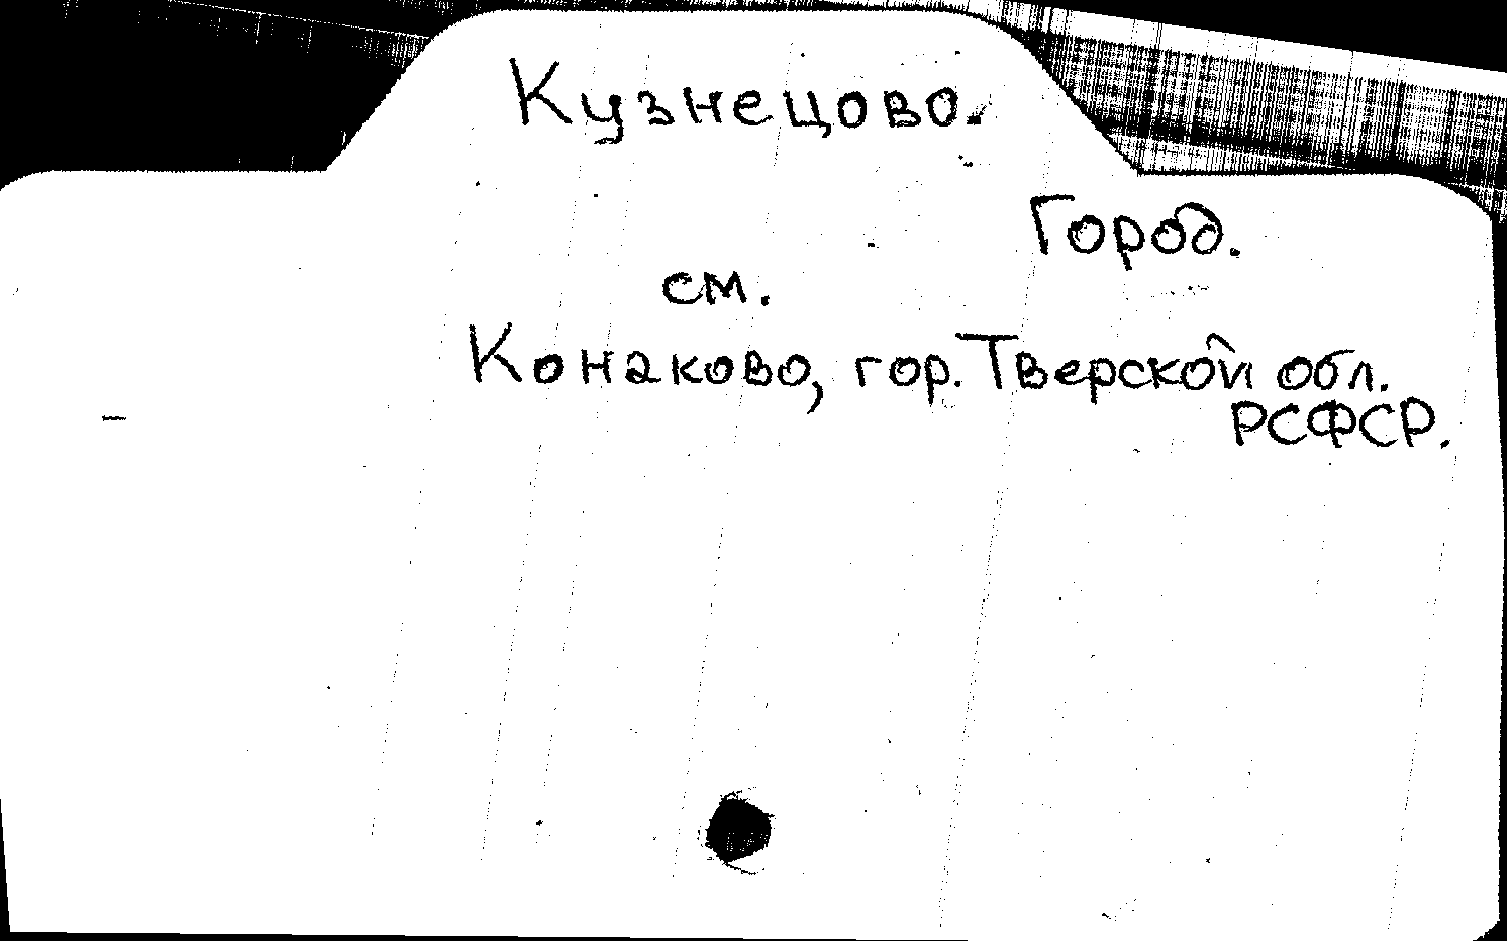 Кузнецово.
Город.
см.
Конаково, гор. Тверской обл.
РСФСР.